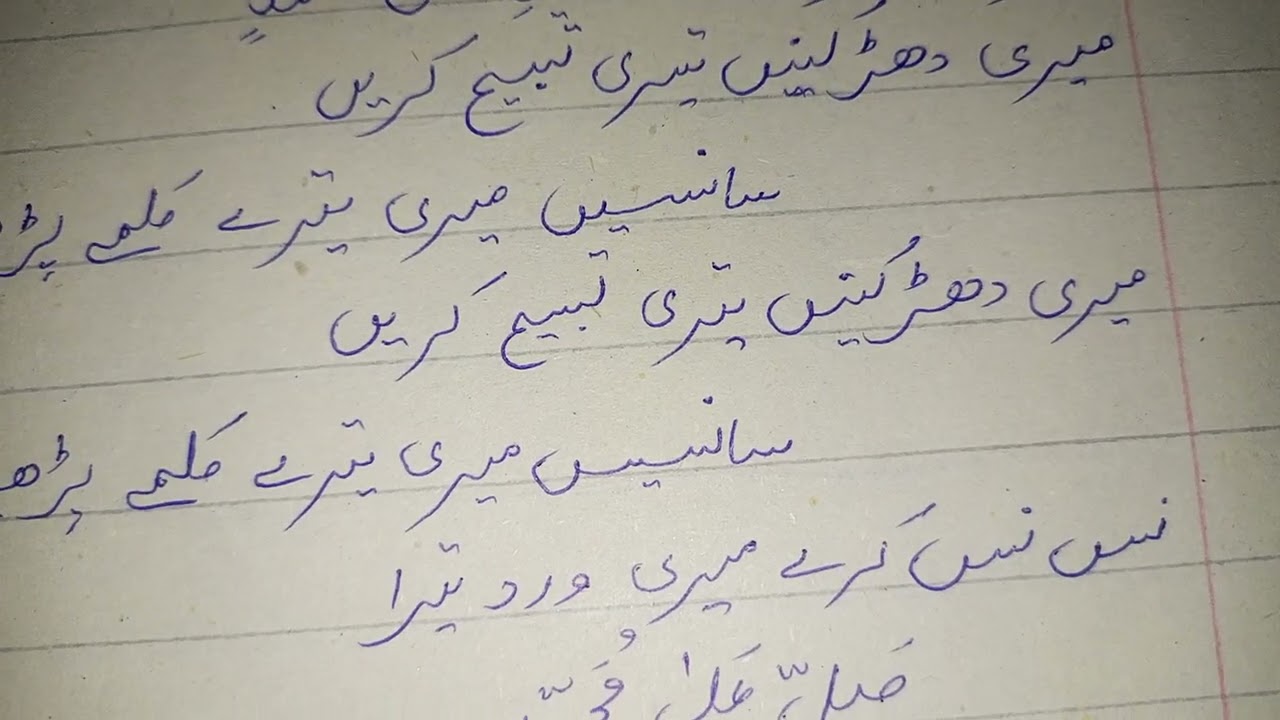 میری دھڑکنیں تیری تسبیح کریں
سانسیں میری تیرے کلمے
میری دھڑکنیں تیری تسبیح کریں
سانسیں میری تیرے کلمے پڑھ
نس نس کرے میری ورد تیرا
صلِّ علیٰ